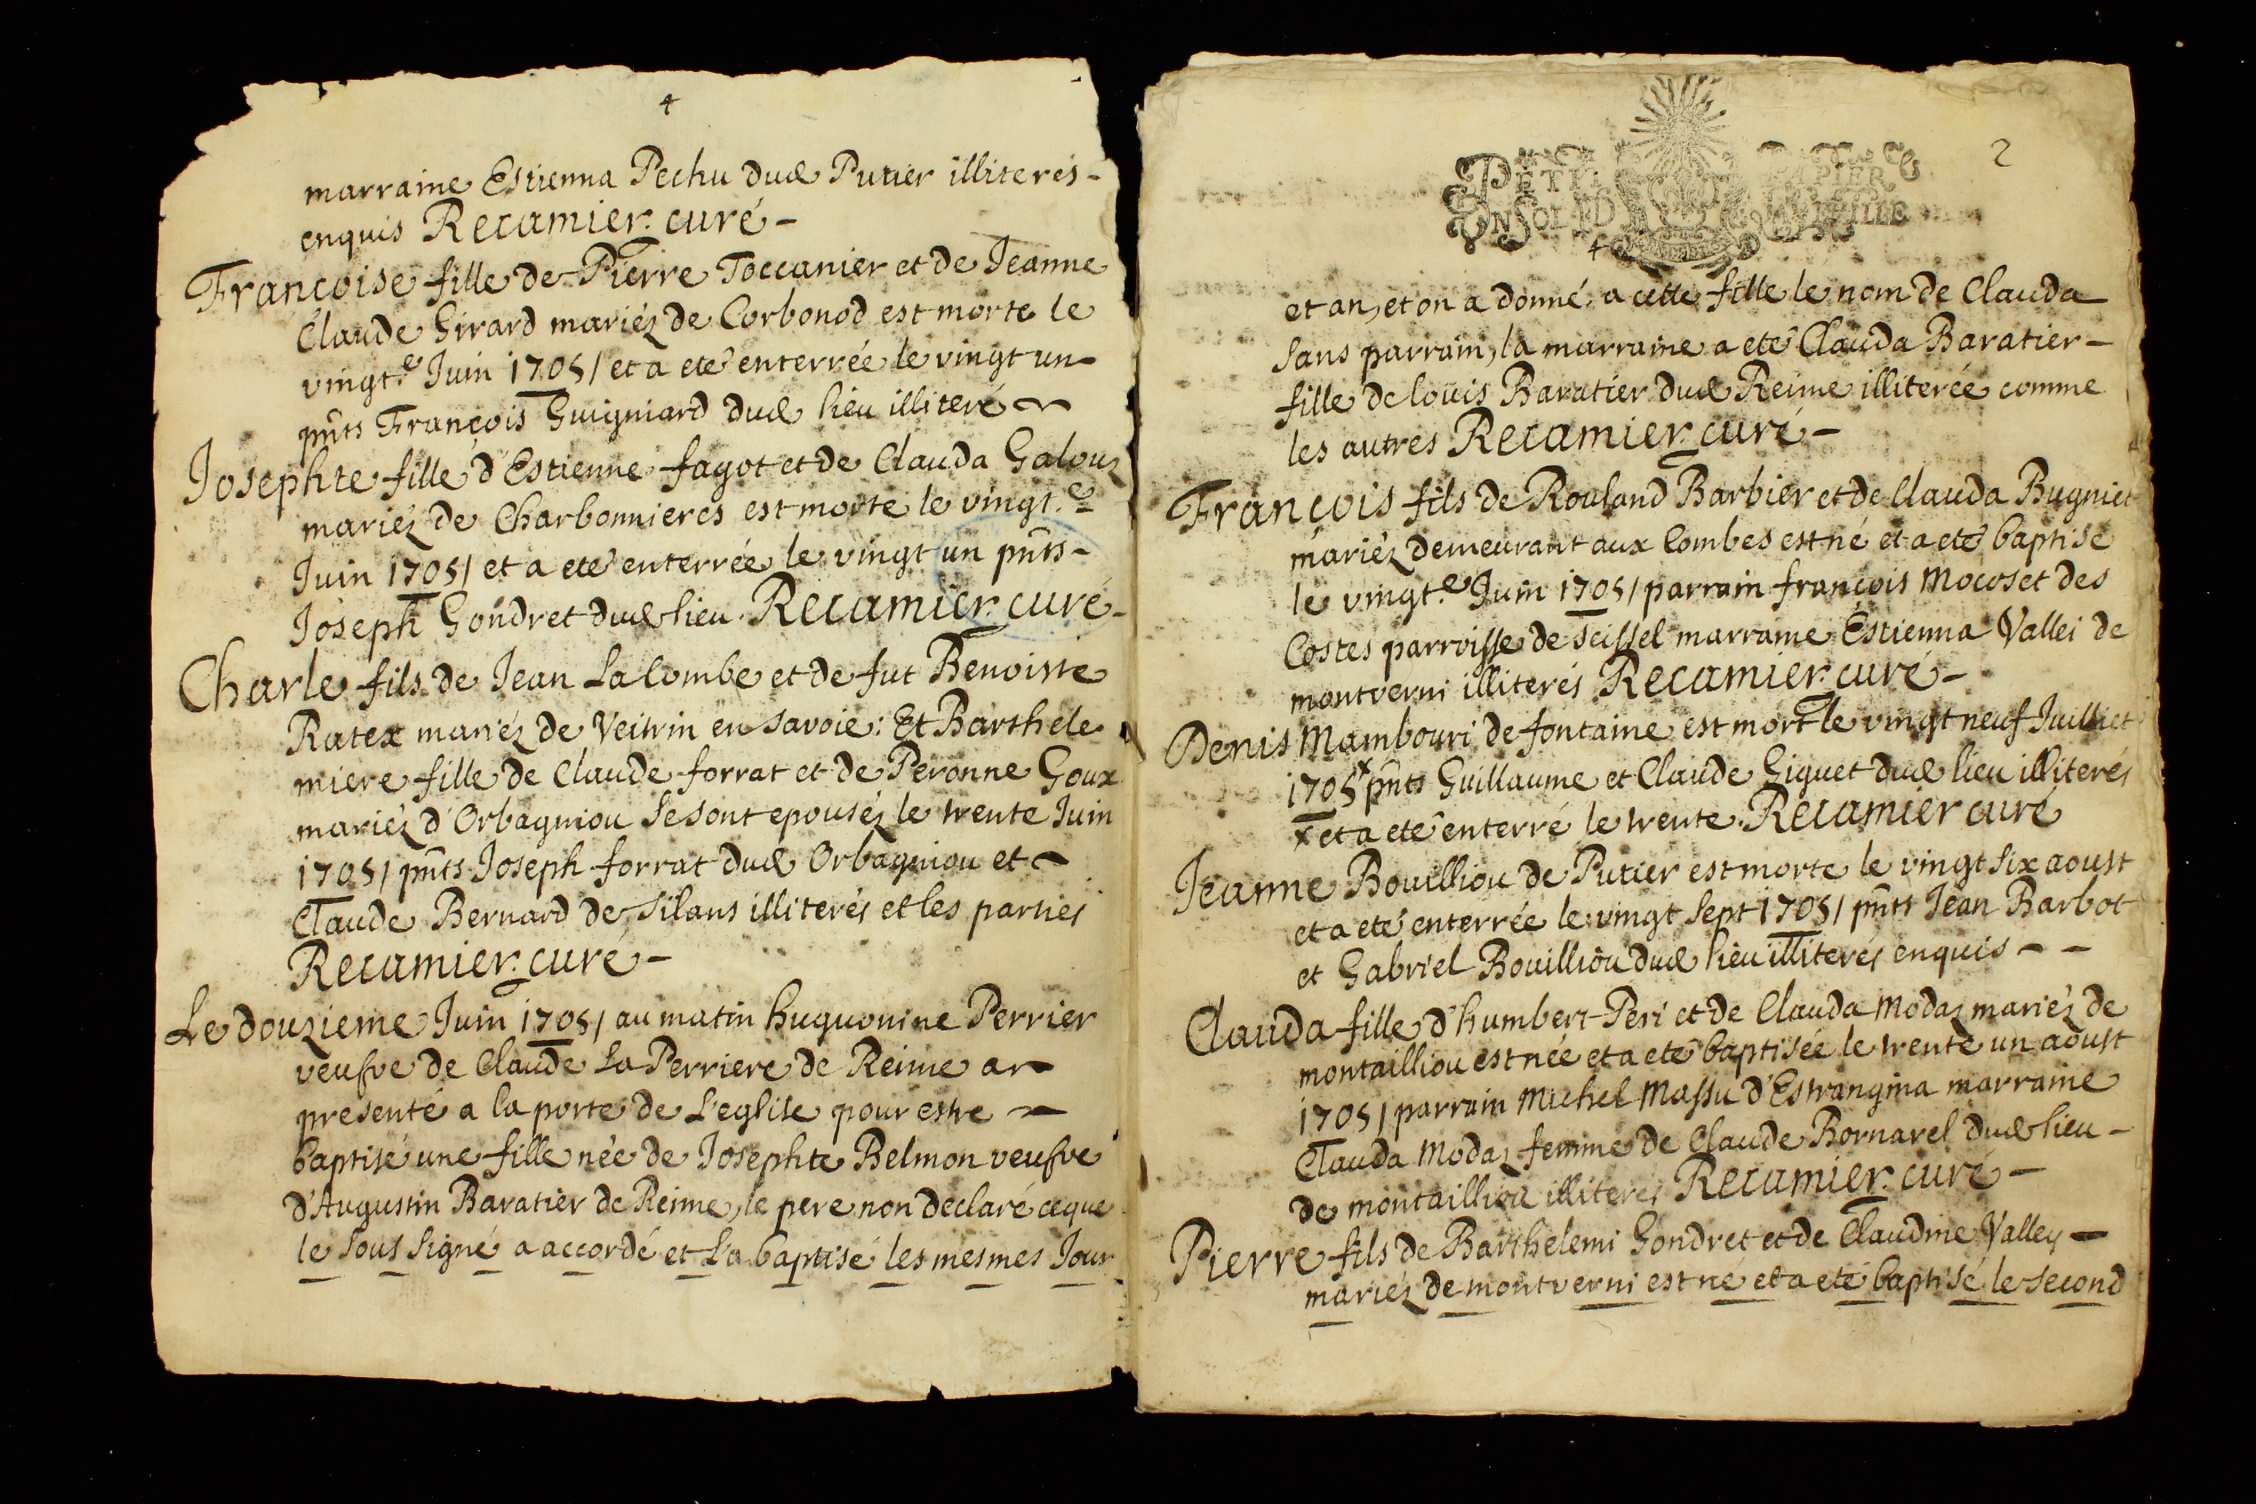 4
marraine Estienna Pechu dud Putier illiterés -
enquis Recamier. curé -
Françoise fille de Pierre Toccanier et de Jeanne
Claude Girard mariéz de Corbonod est morte le
vingt.e Juin 1705/ et a eté enterrée le vingt un
pñts François Guigniard dud lieu illiteré
Josephte fille d'Estienne fagot et de Clauda Galouz
mariéz de Charbonnieres est morte le vingt.e
Juin 1705/ et a eté enterrée le vingt un pñts -
Joseph Gondret dud lieu. Recamier. curé -
Charle fils de Jean La Combe et de fut Benoiste
Ratex mariéz de Veitrin en savoie: Et Barthele
miere fille de Claude forrat et de Peronne Goux
mariéz d'Orbagniou se sont epouséz le trente Juin
1705/ pñts Joseph forrat dud Orbagniou et
Claude Bernard de Silans illiterés et les parties
Recamier. curé -
Le douzieme Juin 1705/ au matin huguonine Perrier
veufve de Claude La Perriere de Reime a
presenté a la porte de L'eglise pour estre
baptisé une fille née de Josephte Belmon veufve
d'Augustin Baratier de Reime, le pere non declaré ceque
le sous signé a accordé et L'a baptisé les mesmes Jour
2
PETIT PAPIER
UN SOL
4
et an, et on a donné a cette fille le nom de Clauda
sans parrain, la marraine a eté Clauda Baratier -
fille de louis Baratier dud Reime illiterée comme
les autres Recamier. curé -
François fils de Rouland Barbier et de Clauda Bugniet
mariéz demeurant aux Combes est né et a eté baptisé
le vingt.e Juin 1705/ parrain françois Mocoset des
Costes parroisse de seissel marraine Estienna Vallei de
montverni illiterés Recamier. curé -
Denis Mambouri de fontaine est mort le vingt neuf Juilliet
1705 x pñts Guillaume et Claude Giguet dud lieu illiterés
x et a eté enterré le trente. Recamier curé
Jeanne Bouilliou de Putier est morte le vingt six aoust
et a eté enterrée le vingt sept 1705/ pñts Jean Barbot
et Gabriel Bouilliou dud lieu illiterés enquis - -
Clauda fille d'humbert Peri et de Clauda Modaz mariéz de
montailliou est née et a eté baptisée le trente un aoust
1705/ parrain Michel Massu d'Estrangina marraine
Clauda Modaz femme de Claude Bornarel dud lieu -
de montailliou illiterés Recamier. curé -
Pierre fils de Barthelemi Gondret et de Claudine Valley -
mariéz de montverni est né et a eté baptisé le second